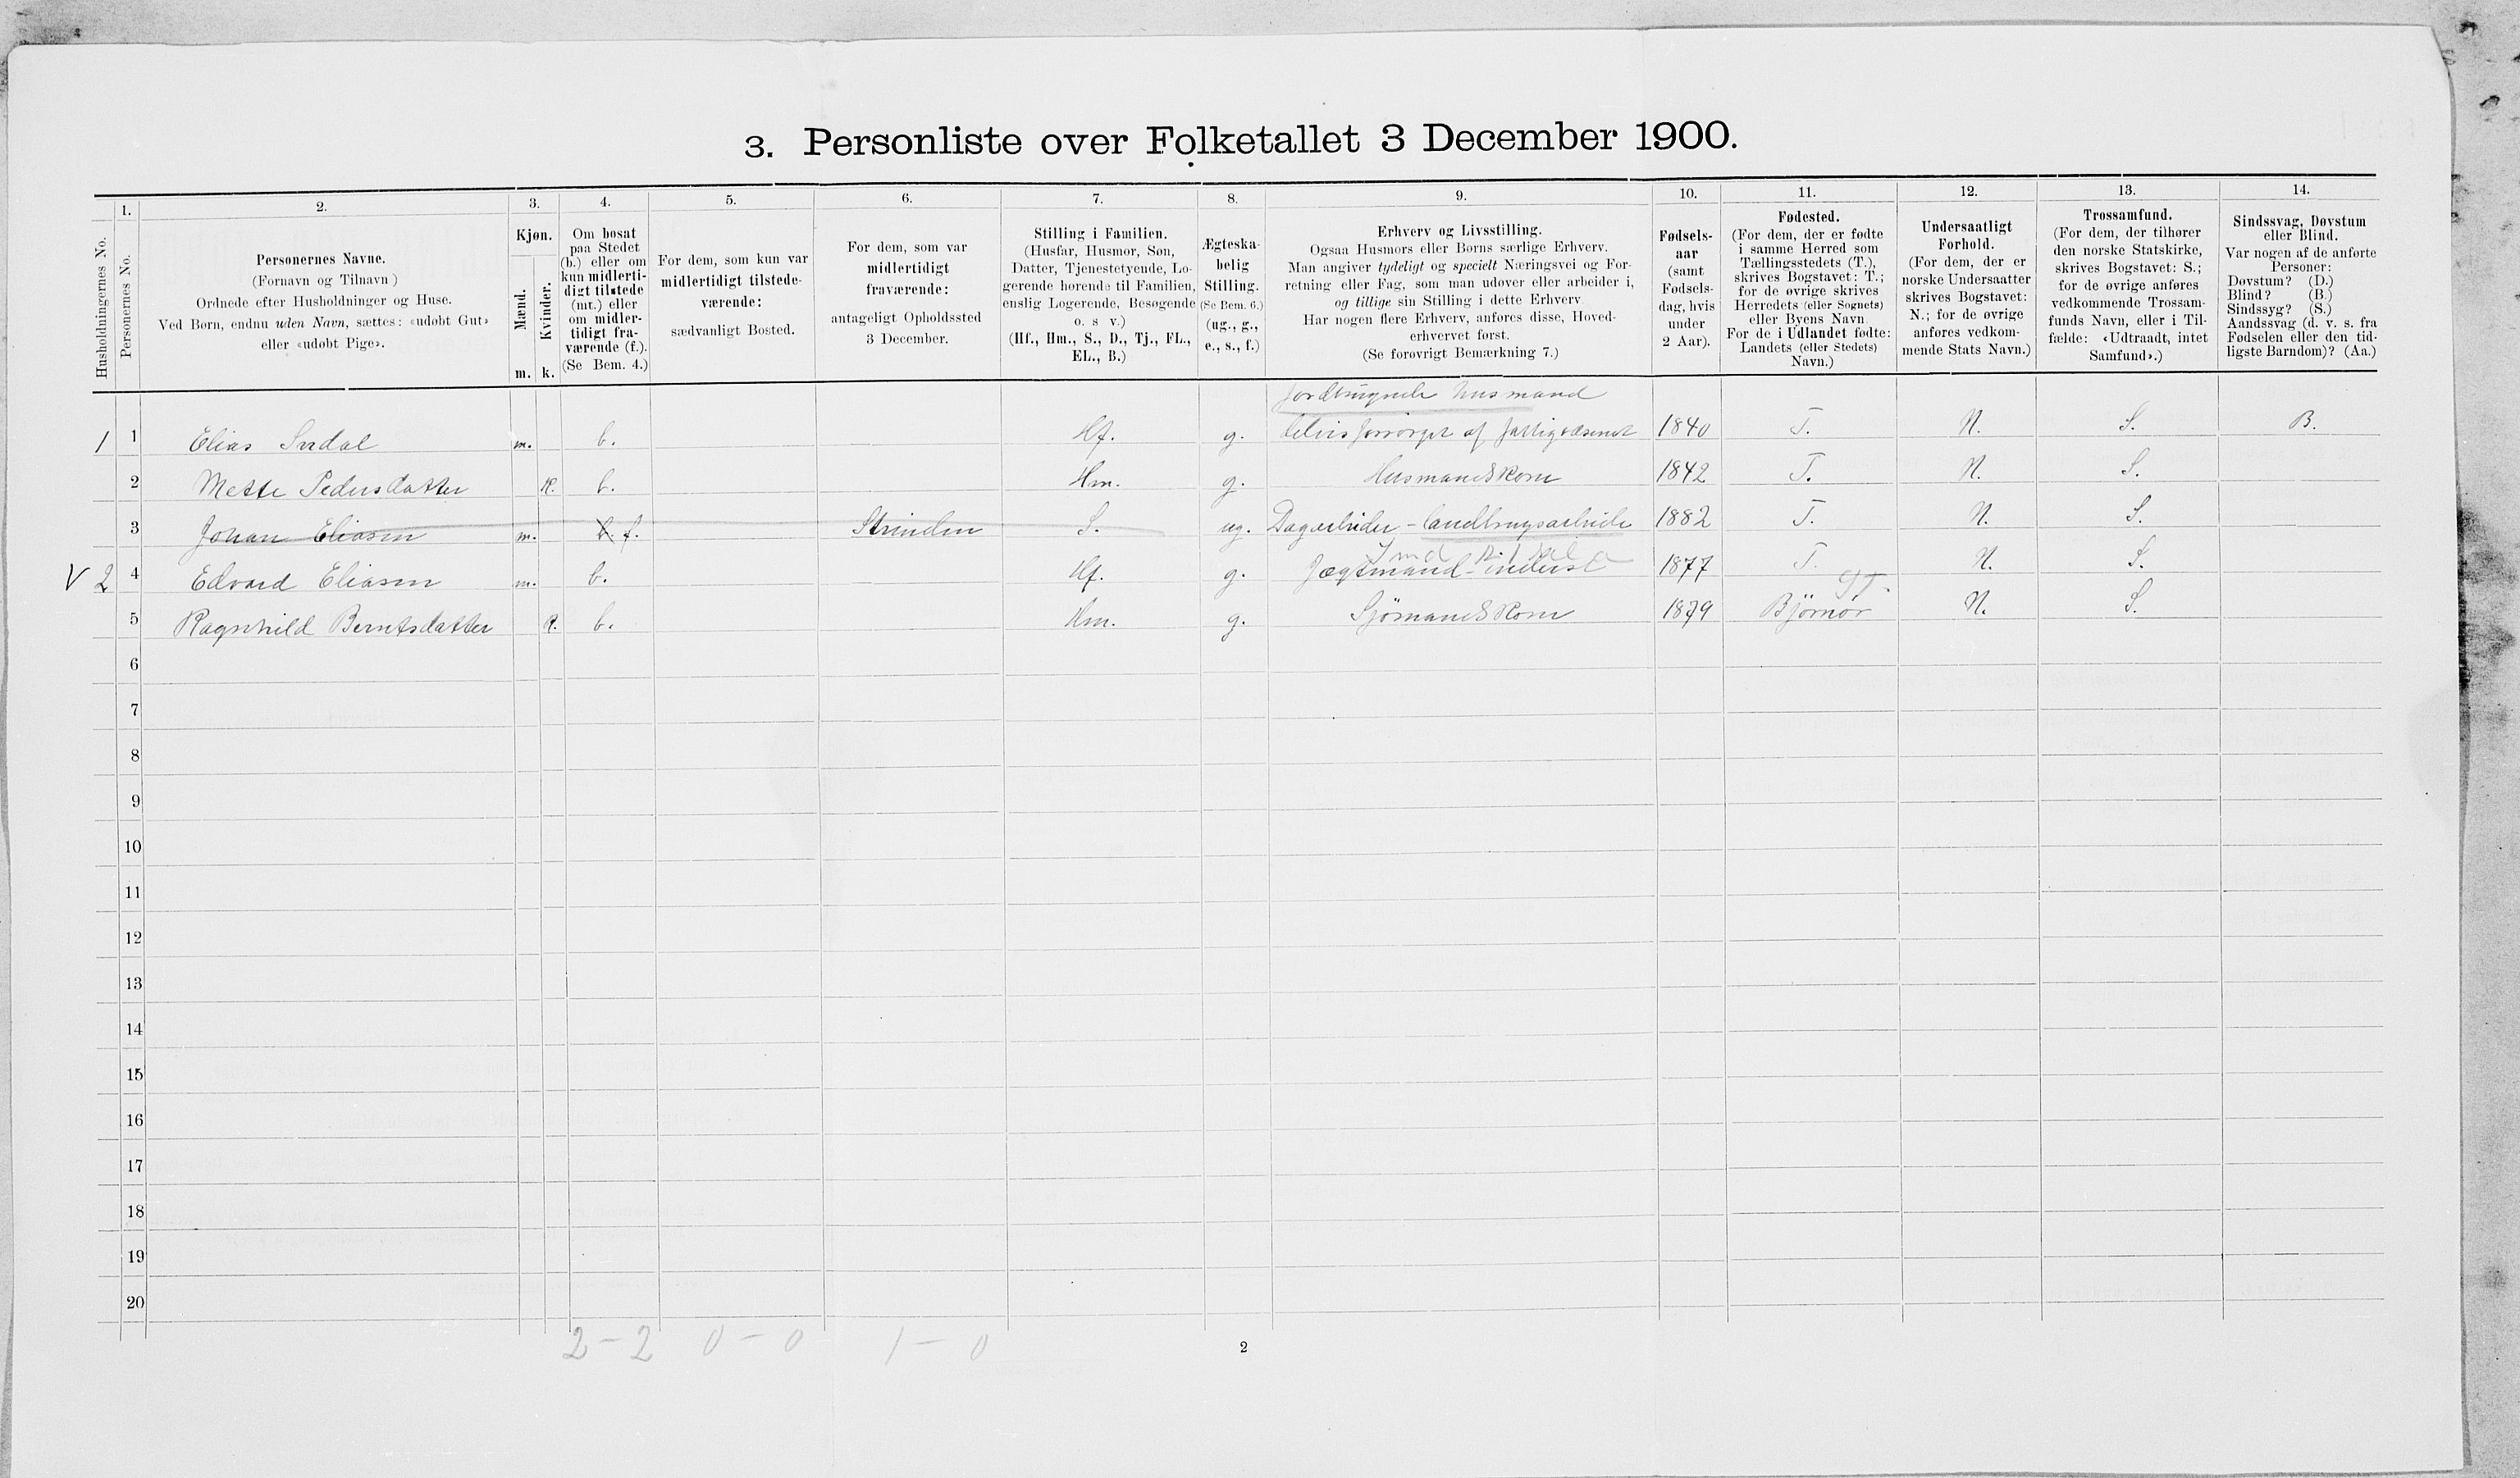 3. Personliste over Folketallet 3 December 1900.
1. 2. 3. 4. 5. 6. 7. 8. 9. 10. 11. 12. 13. 14.
Husholdningernes No.
Personernes No.
Personernes Navne.
(Fornavn og Tilnavn)
Ordnede efter Husholdninger og Huse.
Ved Børn, endnu uden Navn, sættes: «udøbt Gut»
eller «udøbt Pige».
Kjøn.
Mænd.
Kvinder.
m. k.
Om bosat
paa Stedet
(b.) eller om
kun midlerti-
digt tilstede
(mt.) eller
om midler-
tidigt fra-
værende (f.).
(Se Bem. 4.)
For dem, som kun var
midlertidigt tilstede-
værende:
sædvanligt Bosted.
For dem, som var
midlertidigt
fraværende:
antageligt Opholdssted
3 December.
Stilling i Familien.
(Husfar, Husmor, Søn,
Datter, Tjenestetyende, Lo-
gerende hørende til Familien,
enslig Logerende, Besøgende
o. s v.)
(Hf., Hm., S., D., Tj., FL.,
EL., B.)
Ægteska-
belig
Stilling.
(Se Bem. 6.)
(ug., g.,
e., s., f.)
Erhverv og Livsstilling.
Ogsaa Husmors eller Børns særlige Erhverv.
Man angiver tydeligt og specielt Næringsvei og For-
retning eller Fag, som man udøver eller arbeider i,
og tillige sin Stilling i dette Erhverv
Har nogen flere Erhverv, anføres disse, Hoved-
erhvervet først.
(Se forøvrigt Bemærkning 7.)
Fødsels-
aar
(samt
Fødsels-
dag, hvis
under
2 Aar).
Fødested.
(For dem, der er fødte
i samme Herred som
Tællingsstedets (T.),
skrives Bogstavet: T.;
for de øvrige skrives
Herredets (eller Sognets)
eller Byens Navn
For de i Udlandet fødte:
Landets (eller Stedets)
Navn.)
Undersaatligt
Forhold.
(For dem, der er
norske Undersaatter
skrives Bogstavet:
N.; for de øvrige
anføres vedkom-
mende Stats Navn.)
Trossamfund.
(For dem, der tilhører
den norske Statskirke,
skrives Bogstavet: S.;
for de øvrige anføres
vedkommende Trossam-
funds Navn, eller i Til-
fælde: «Udtraadt, intet
Samfund».)
Sindssvag, Døvstum
eller Blind.
Var nogen af de anførte
Personer:
Døvstum? (D.)
Blind? (B.)
Sindssyg? (S.)
Aandssvag (d. v. s. fra
Fødselen eller den tid-
ligste Barndom)? (Aa.)
Jordbrugende husmand
1 1 Elias Indal m. b. Hf. g. delvis forsørget af fattigvæsenet 1840 T. N. S. B.
2 Mette Pedersdatter k. b. Hm. g. Husmandskone 1842 T. N. S.
3 Johan Eliasen m. b. f. Strinden S. ug. Dagarbeider - landbrugsarbeide 1882 T. N. S.
V 2 4 Edvard Eliasen m. b. Hf. g. Jægtmand - inderst 1877 T. N. S.
5 Ragnhild Berntsdatter k. b. Hm. g. Sjömandskone 1879 Björnör N. S.
6
7
8
9
10
11
12
13
14
15
16
17
18
19
20
2 - 2 0 - 0 1 - 0
2